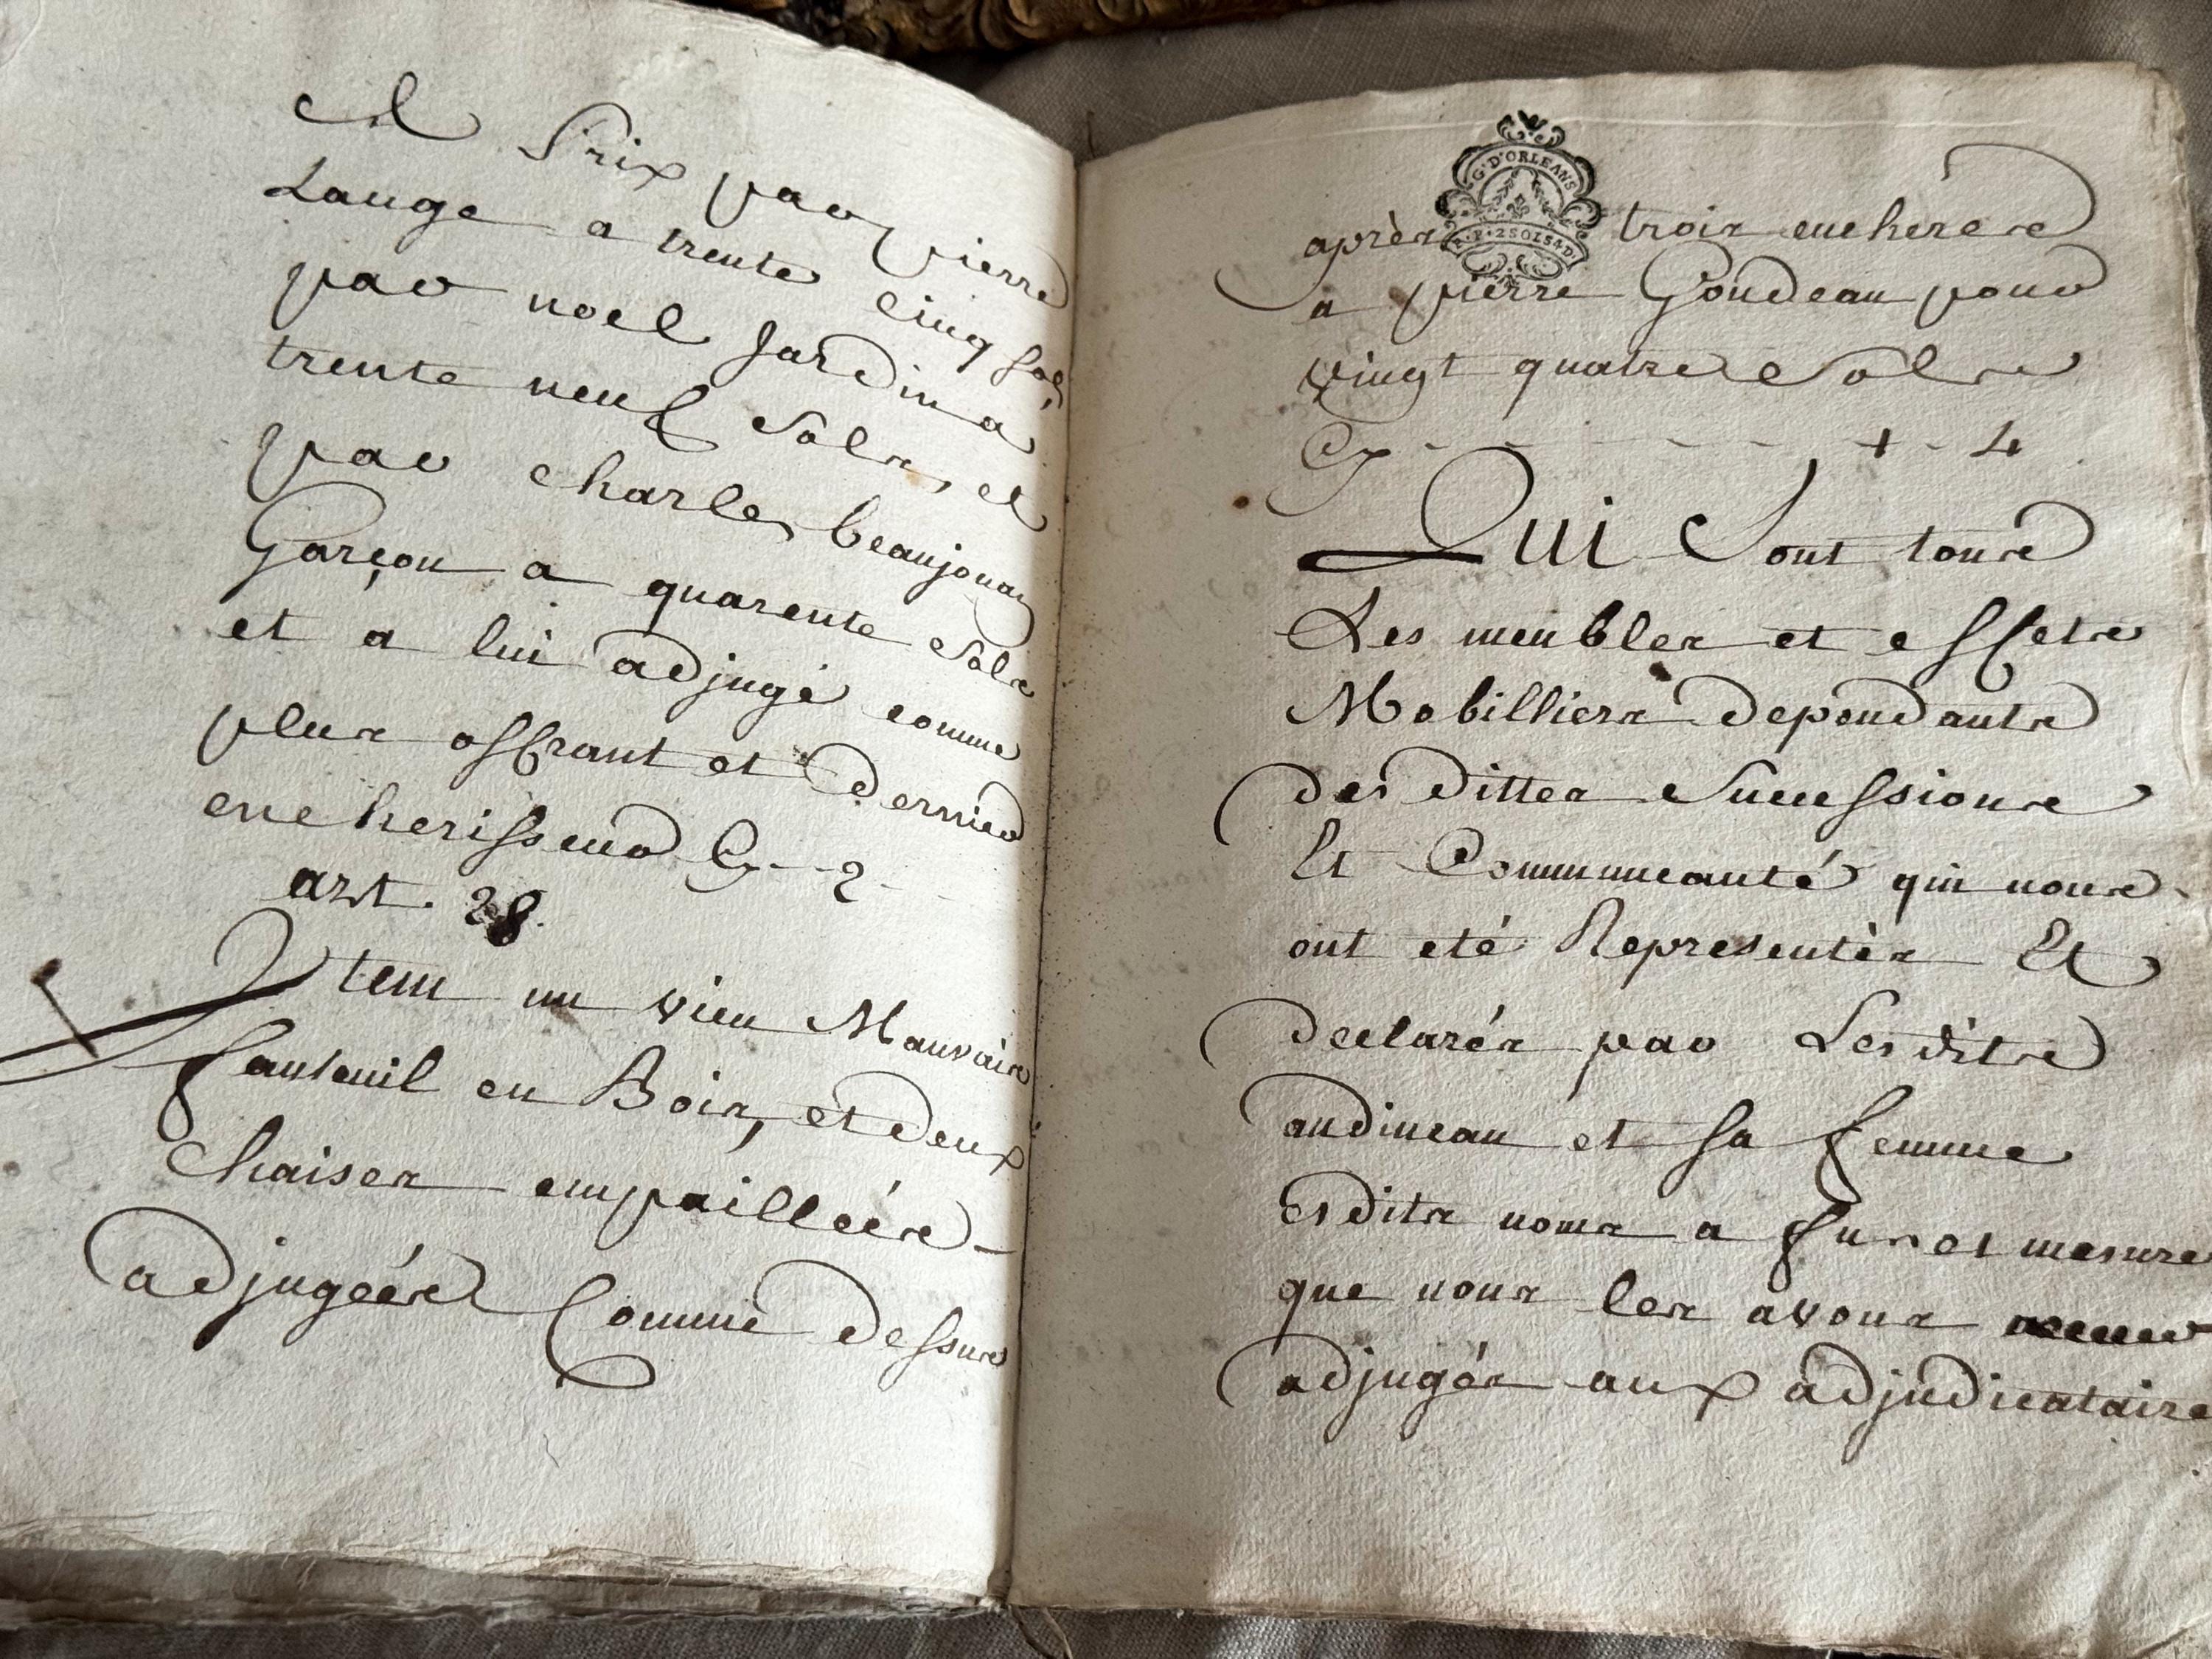 et Prix par pierre
Lange a trente Cinq sols
par noel Jardin a
trente neuf Sols, et
par charles beaujouan
Garçon a quarente Sols
et a lui adjugé comme
plus offrant et Dernier
encherisseur Cy - - 2 -
art. 28.
Item un vieu Mauvais
fauteuil en Bois, et Deux
Chaises empaillées -
adjugées Comme dessus
G. D'ORLEANS
2 SOLS 4 D.
après trois encheres
a pierre Goudeau pour
vingt quatre Sols
Cy - - - - - + - 4
Qui Sont tous
Les meubles et effets
Mobilliers Dependants
des Dittes Successions
Et Communeauté qui nous
ont eté Representés Et
declarés par Lesdits
audineau et sa femme
Esdits noms a fur et mesure
que nous les avons
adjugés aux adjudicataire